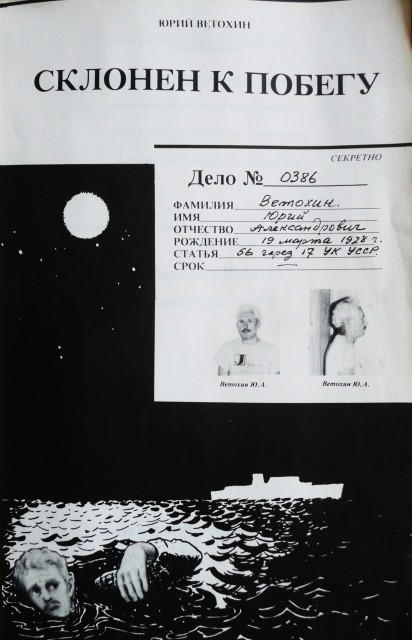 ЮРИЙ ВЕТОХИН
СКЛОНЕН К ПОБЕГУ
СЕКРЕТНО
Дело № 0386
ФАМИЛИЯ Ветохин.
ИМЯ Юрий
ОТЧЕСТВО Александрович
РОЖДЕНИЕ 19 марта 1928 г.
СТАТЬЯ 56 через 17 УК УССР.
СРОК —
Ветохин Ю.А. Ветохин Ю.А.